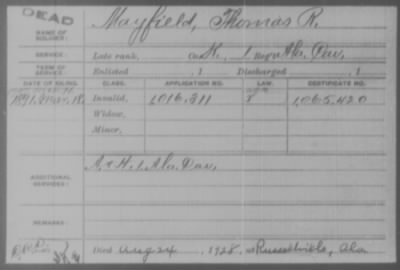 DEAD
NAME OF SOLDIER: Mayfield, Thomas R.
SERVICE: Late rank, Co. H., 1 Reg't Ala. Cav.
TERM OF SERVICE: Enlisted , 1 Discharged , 1
DATE OF FILING. CLASS. APPLICATION NO. LAW. CERTIFICATE NO.
1891, Mar. 18 Invalid, 1,016,311 1,065,420
Widow,
Minor,
ADDITIONAL SERVICES: A. & H. 1, Ala. Cav.
REMARKS:
Died Aug 24, 1928, at Russellville, Ala.